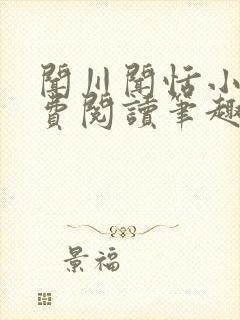 聞川聞恬小
費閱讀筆趣
景福